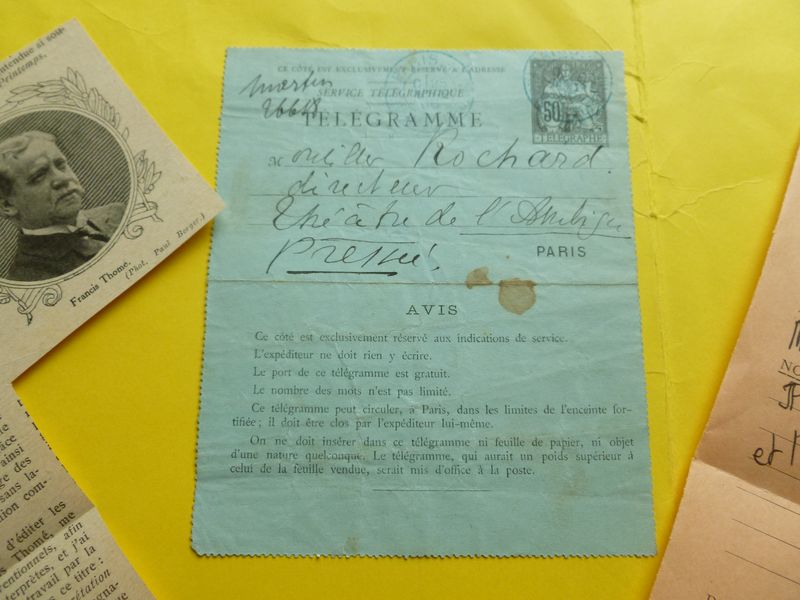 ntendue si sou-
Printemps.
Francis Thomé.
(Phot. Paul Berger.)
ainsi
ge des
sans la-
tion com-
d'éditer les
Thomé, me
entionnels, afin
terprètes, et j'ai
travail par la
ce titre :
prétation
CE CÔTÉ EST EXCLUSIVEMENT RÉSERVÉ A L'ADRESSE
SERVICE TÉLÉGRAPHIQUE
martin
26648
TÉLÉGRAMME
50
TÉLÉGRAPHE
Rochard
directeur
Théâtre de l'Ambigu
Pressé. PARIS
AVIS
Ce côté est exclusivement réservé aux indications de service.
L'expéditeur ne doit rien y écrire.
Le port de ce télégramme est gratuit.
Le nombre des mots n'est pas limité.
Ce télégramme peut circuler, à Paris, dans les limites de l'enceinte for-
tifiée ; il doit être clos par l'expéditeur lui-même.
On ne doit insérer dans ce télégramme ni feuille de papier, ni objet
d'une nature quelconque. Le télégramme, qui aurait un poids supérieur à
celui de la feuille vendue, serait mis d'office à la poste.
NO
et